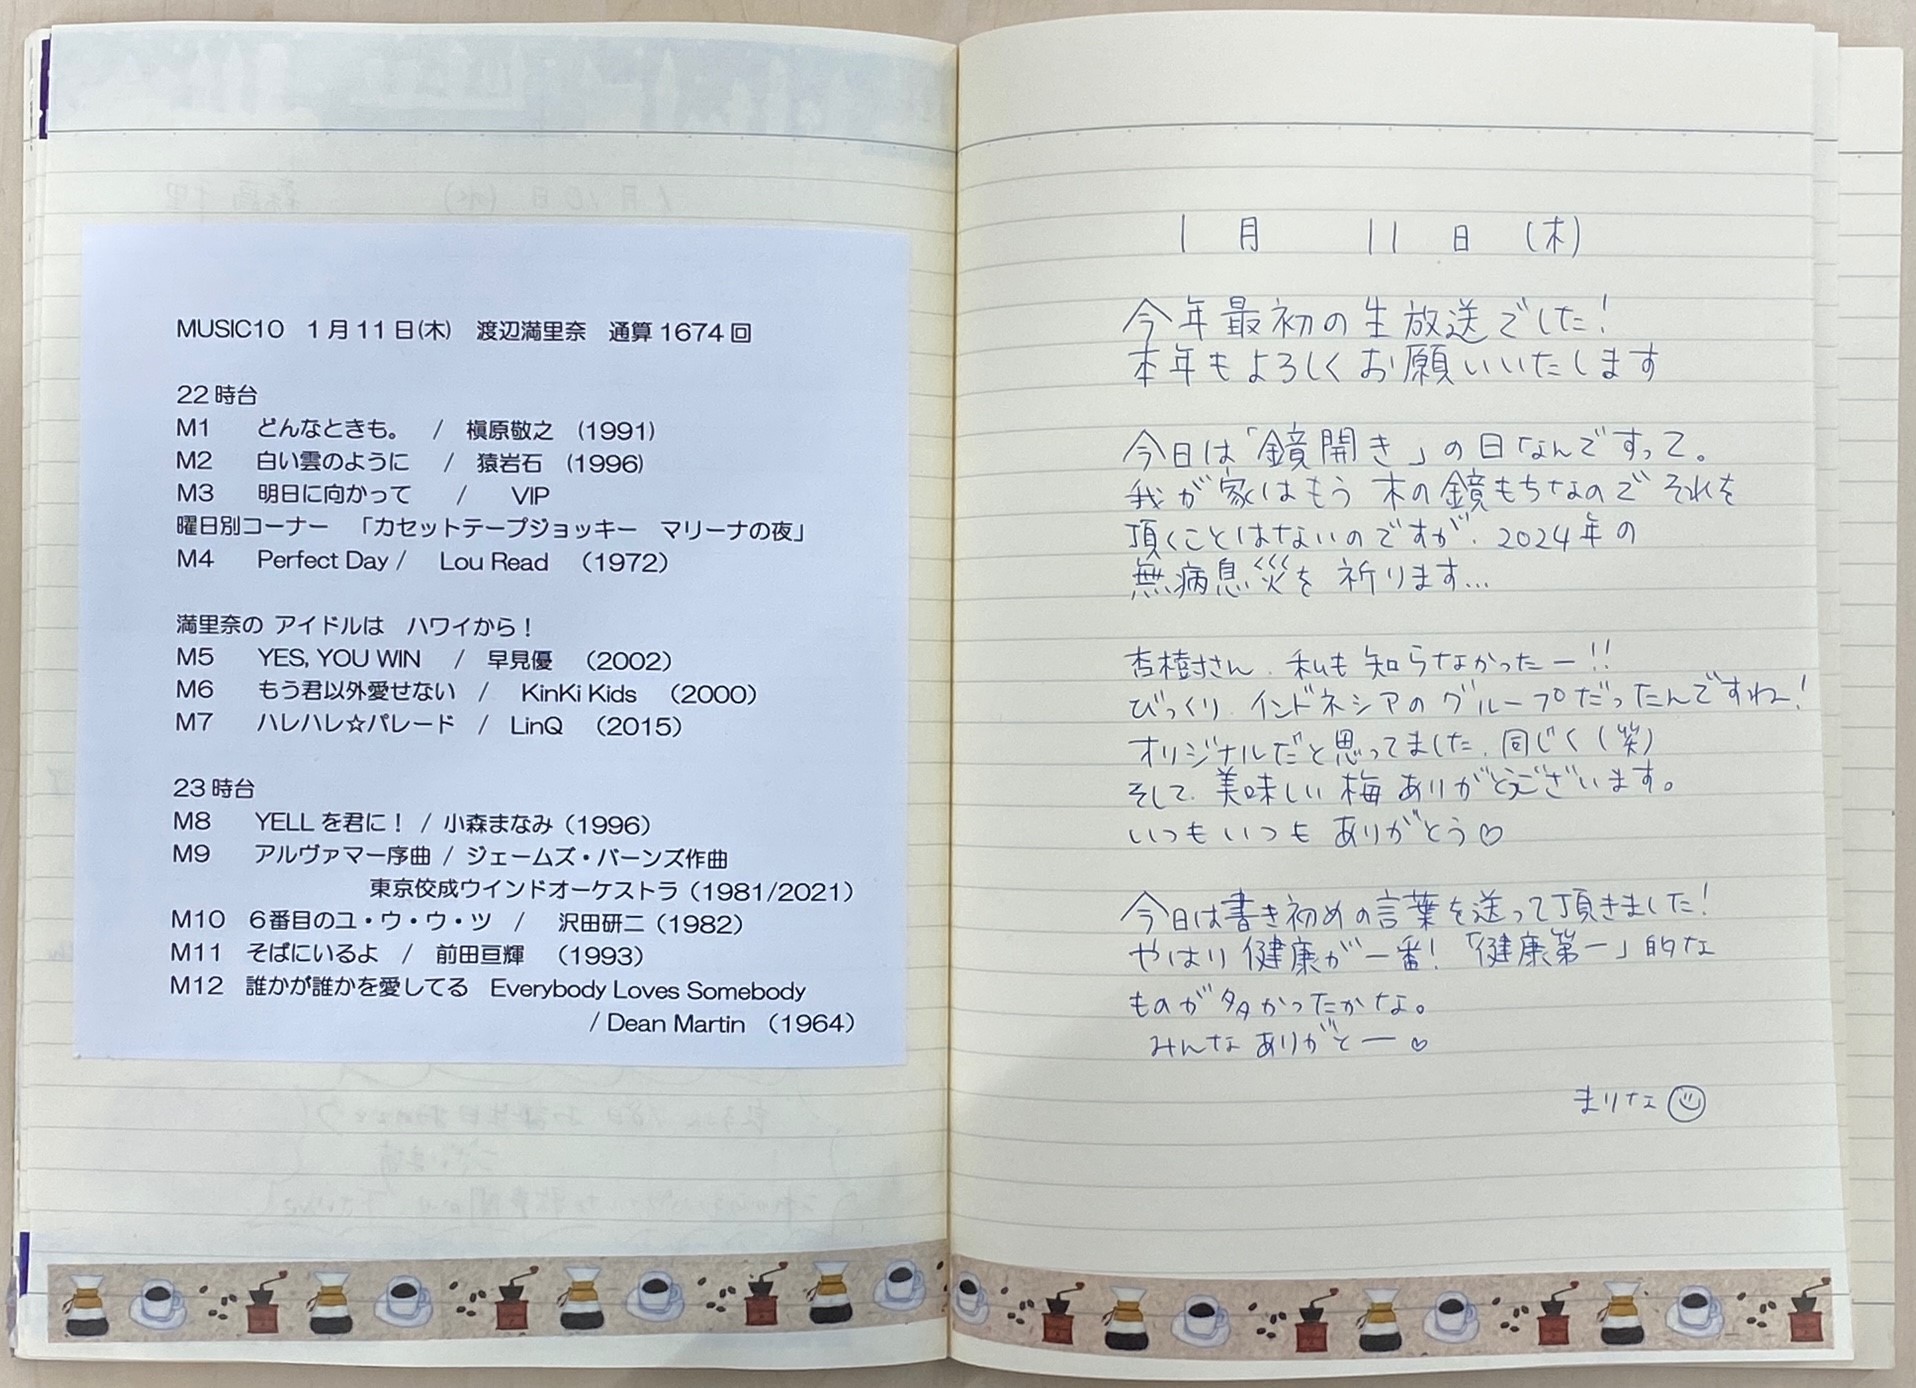 MUSIC10 1月11日(木) 渡辺満里奈 通算1674回
22時台
M1 どんなときも。 / 槇原敬之 (1991)
M2 白い雲のように / 猿岩石 (1996)
M3 明日に向かって / VIP
曜日別コーナー 「カセットテープジョッキー マリーナの夜」
M4 Perfect Day / Lou Read (1972)
満里奈の アイドルは ハワイから！
M5 YES, YOU WIN / 早見優 (2002)
M6 もう君以外愛せない / KinKi Kids (2000)
M7 ハレハレ☆パレード / LinQ (2015)
23時台
M8 YELLを君に！ / 小森まなみ (1996)
M9 アルヴァマー序曲 / ジェームズ・バーンズ作曲
東京佼成ウインドオーケストラ (1981/2021)
M10 6番目のユ・ウ・ウ・ツ / 沢田研二 (1982)
M11 そばにいるよ / 前田亘輝 (1993)
M12 誰かが誰かを愛してる Everybody Loves Somebody
/ Dean Martin (1964)
1月 11日 (木)
今年最初の生放送でした！
本年もよろしくお願いいたします
今日は「鏡開き」の日なんですって。
我が家はもう木の鏡もちなのでそれを
頂くことはないのですが、2024年の
無病息災を祈ります…
杏樹さん、私も知らなかったー！！
びっくり、インドネシアのグループだったんですね！
オリジナルだと思ってました、同じく（笑）
そして、美味しい梅ありがとうございます。
いつもいつもありがとう♡
今日は書き初めの言葉を送って頂きました！
やはり健康が一番！「健康第一」的な
ものが多かったかな。
みんなありがとー♡
まりな☺